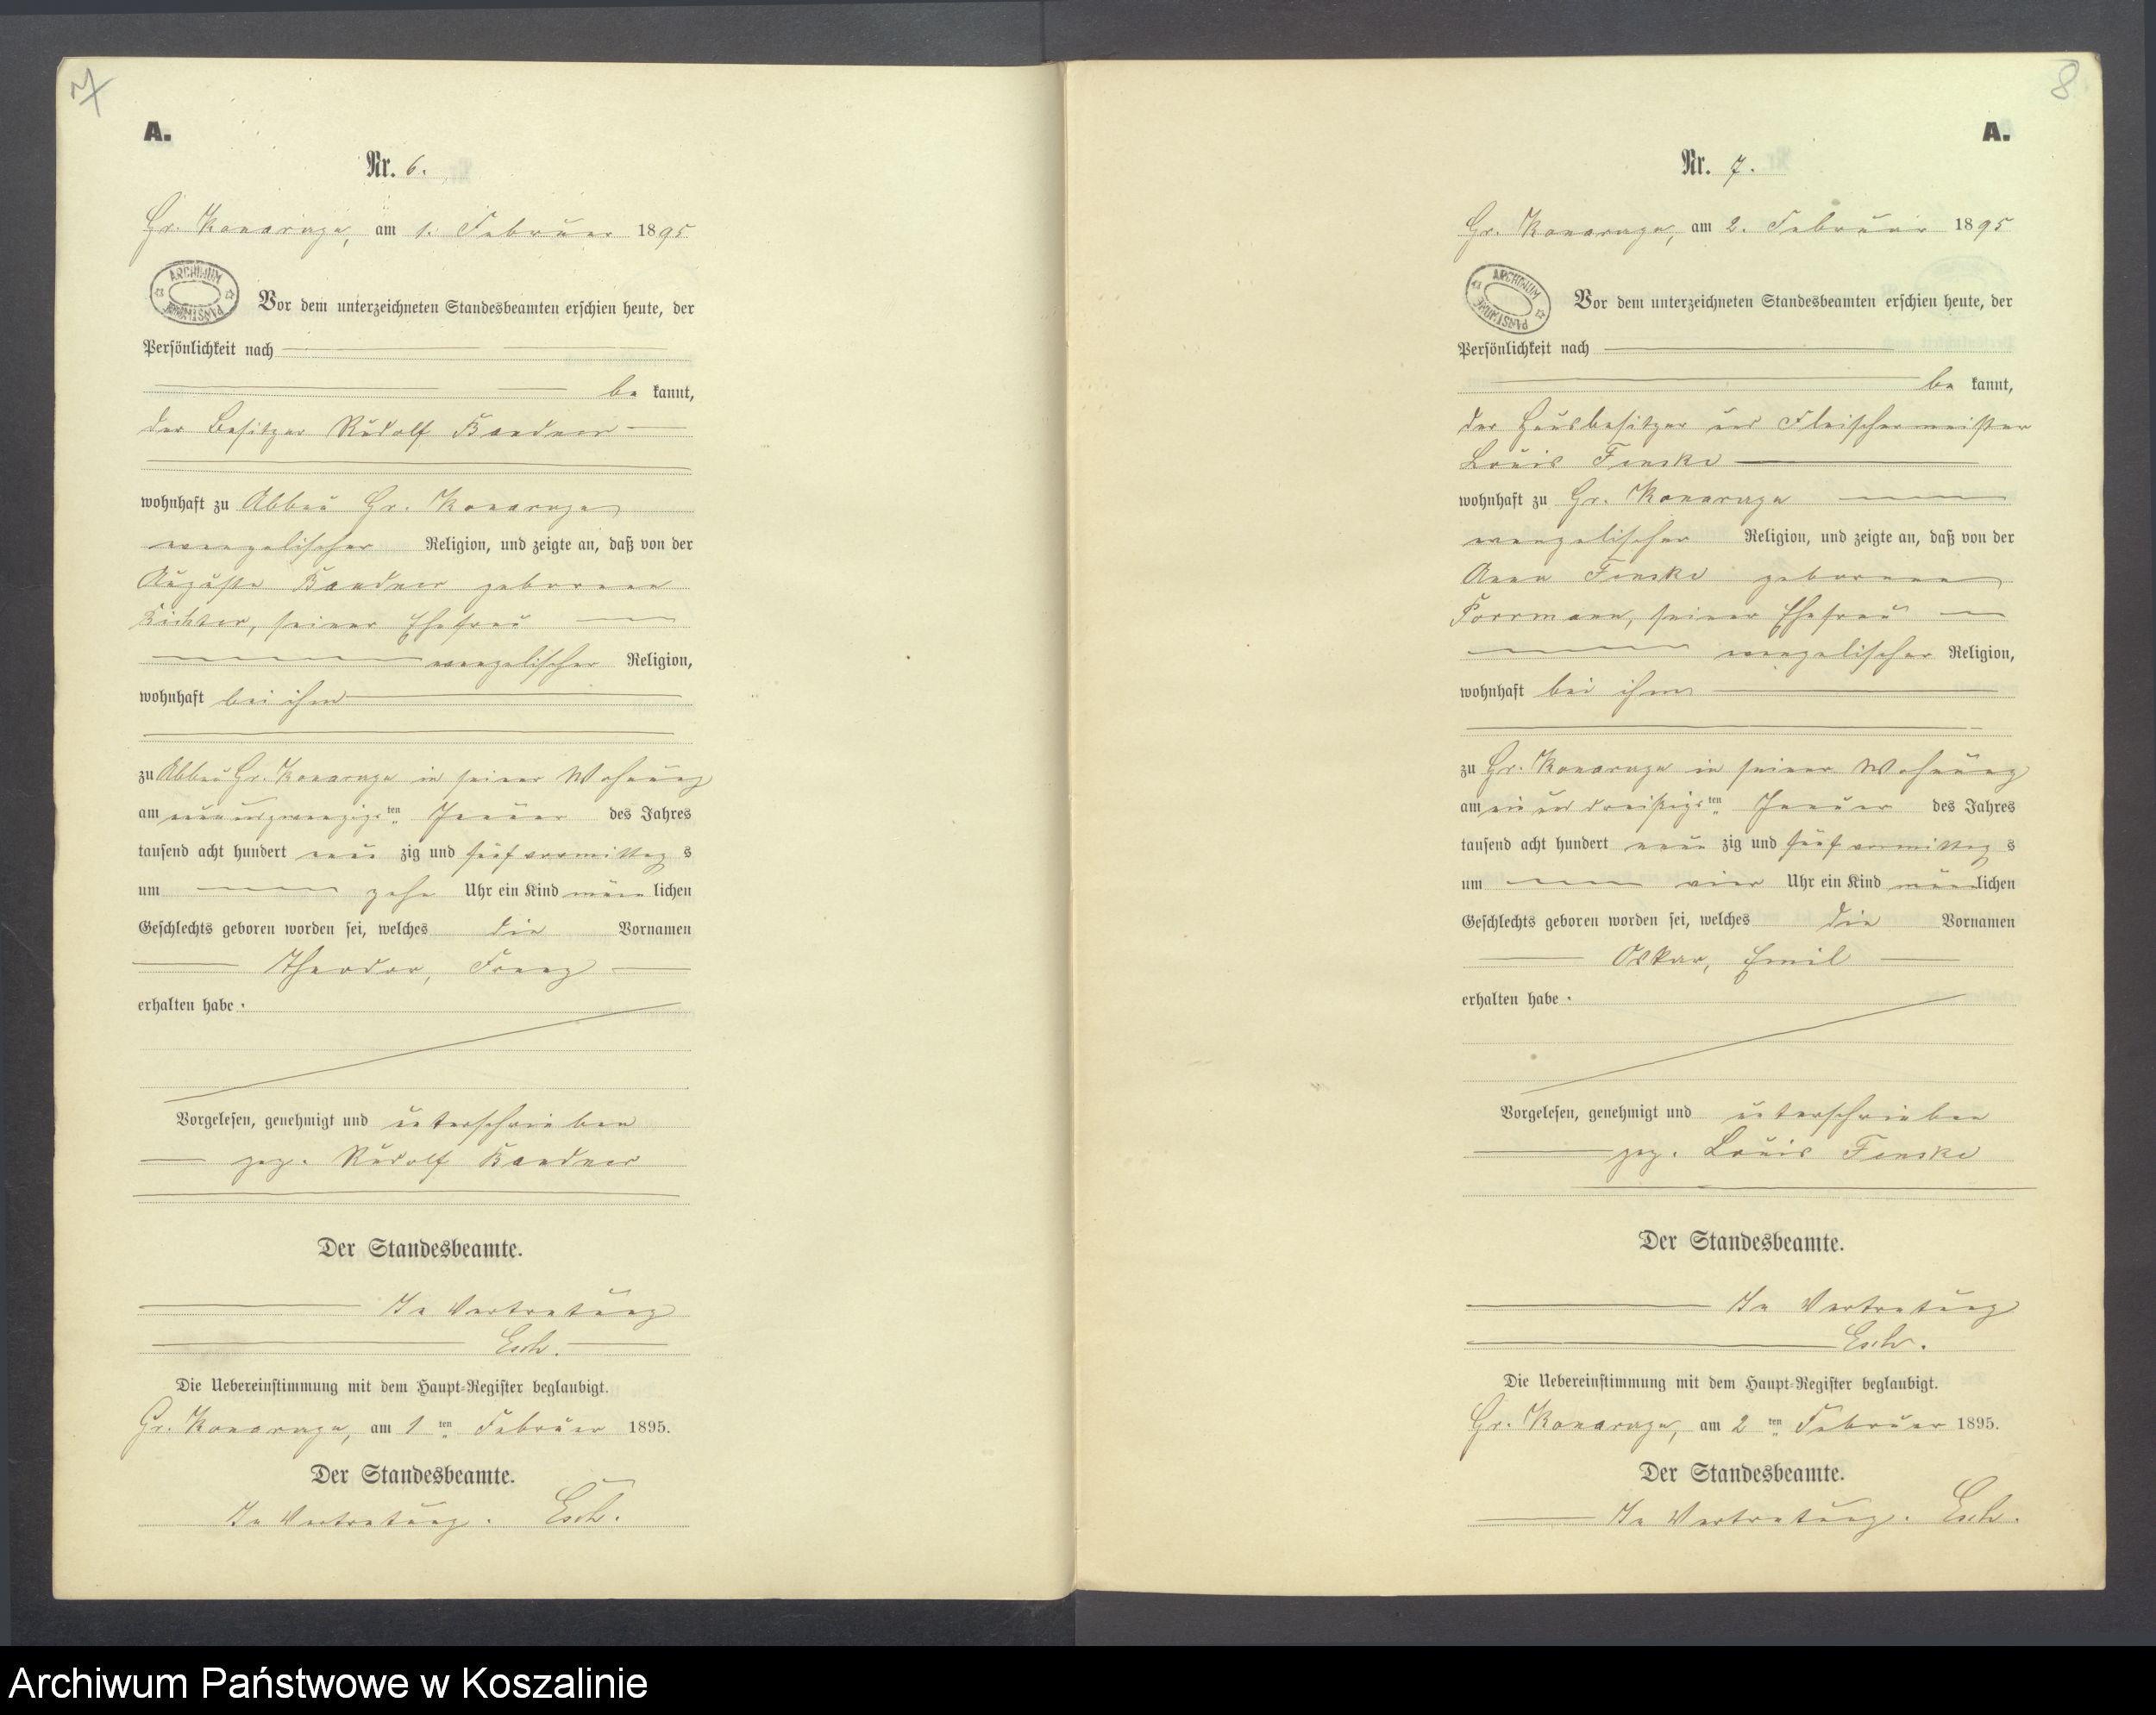 7
A.
Nr. 6.
Gr. Konarzyn, am 1. Februar 1895
ARCHIWUM PAŃSTWOWE
Vor dem unterzeichneten Standesbeamten erschien heute, der
Persönlichkeit nach
be kannt,
der Besitzer Rudolf
wohnhaft zu Abbau Gr. Konarzyn
evangelischer Religion, und zeigte an, daß von der
Auguste geborenen
seiner Ehefrau
evangelischer Religion,
wohnhaft bei ihm
zu Abbau Gr. Konarzyn in seiner Wohnung
am neunundzwanzigs ten Januar des Jahres
tausend acht hundert neun zig und fünf vormittag s
um zehn Uhr ein Kind männ lichen
Geschlechts geboren worden sei, welches die Vornamen
Theodor, Franz
erhalten habe.
Vorgelesen, genehmigt und unterschrieben
gez. Rudolf
Der Standesbeamte.
In Vertretung
Esch.
Die Uebereinstimmung mit dem Haupt-Register beglaubigt.
Gr. Konarzyn, am 1 ten Februar 1895.
Der Standesbeamte.
In Vertretung. Esch.
8
A.
Nr. 7.
Gr. Konarzyn, am 2. Februar 1895
ARCHIWUM PAŃSTWOWE
Vor dem unterzeichneten Standesbeamten erschien heute, der
Persönlichkeit nach
be kannt,
der Hausbesitzer und Fleischermeister
Louis Fenske
wohnhaft zu Gr. Konarzyn
evangelischer Religion, und zeigte an, daß von der
Anna Fenske geborenen
Porrmann, seiner Ehefrau
evangelischer Religion,
wohnhaft bei ihm
zu Gr. Konarzyn in seiner Wohnung
am ein und dreißigs ten Januar des Jahres
tausend acht hundert neun zig und fünf vormittag s
um vier Uhr ein Kind männ lichen
Geschlechts geboren worden sei, welches die Vornamen
Oskar, Emil
erhalten habe.
Vorgelesen, genehmigt und unterschrieben
gez. Louis Fenske
Der Standesbeamte.
In Vertretung
Esch.
Die Uebereinstimmung mit dem Haupt-Register beglaubigt.
Gr. Konarzyn, am 2 ten Februar 1895.
Der Standesbeamte.
In Vertretung. Esch.
Archiwum Państwowe w Koszalinie